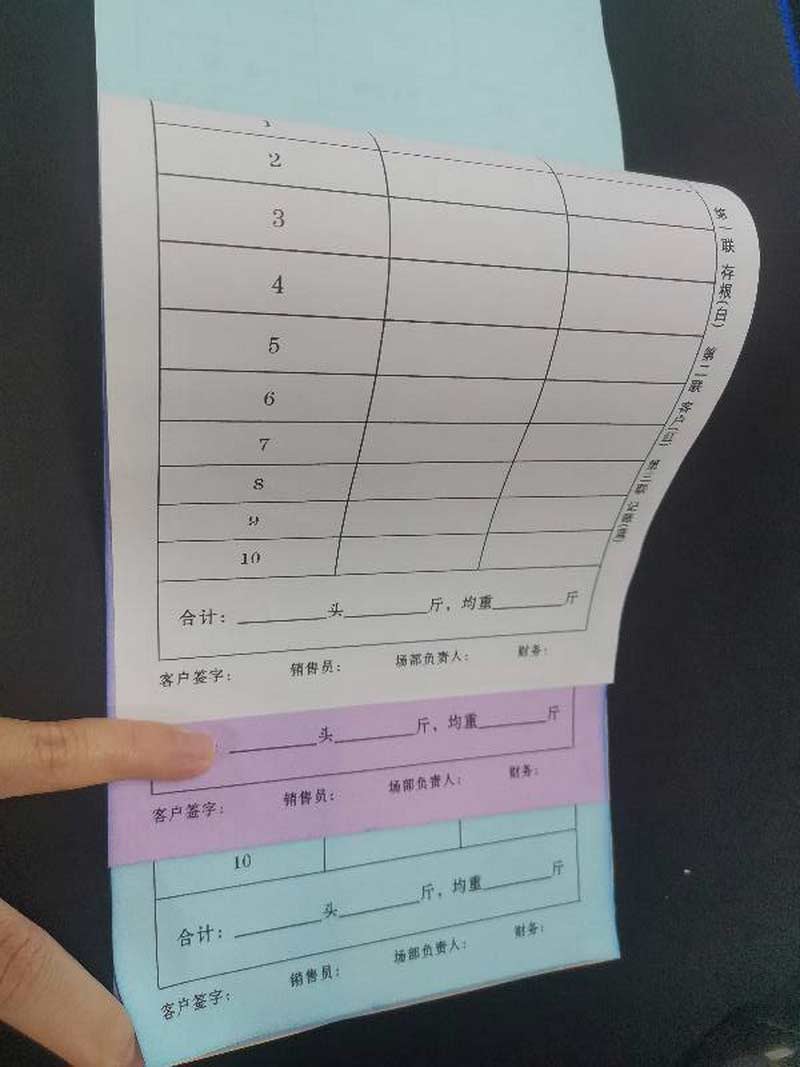 2
3
4
5
6
7
8
9
10
合计：________头________斤，均重________斤
客户签字： 销售员： 场部负责人： 财务：
第一联 存根(白) 第二联 客户(红) 第三联
________头________斤，均重________斤
客户签字： 销售员： 场部负责人： 财务：
10
合计：________头________斤，均重________斤
客户签字： 销售员： 场部负责人： 财务：